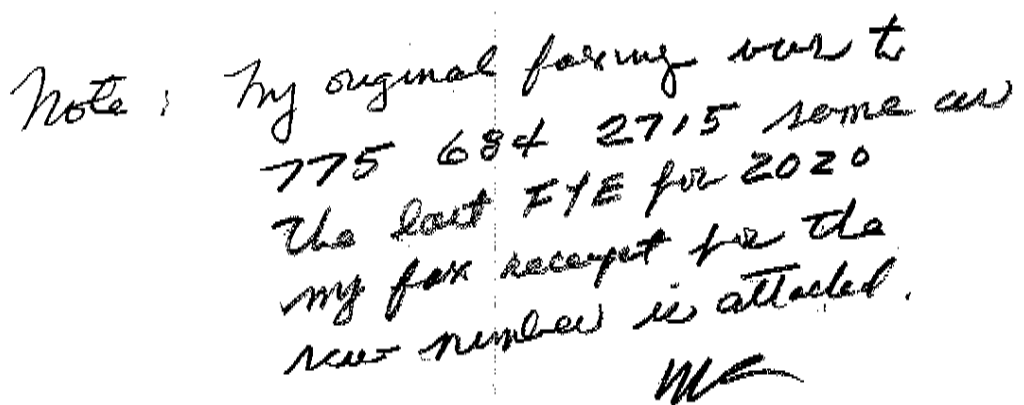 Note: My original faxing was to
775 684 2715 same as
the last FYE for 2020
my fax receipt for the
new number is attached.